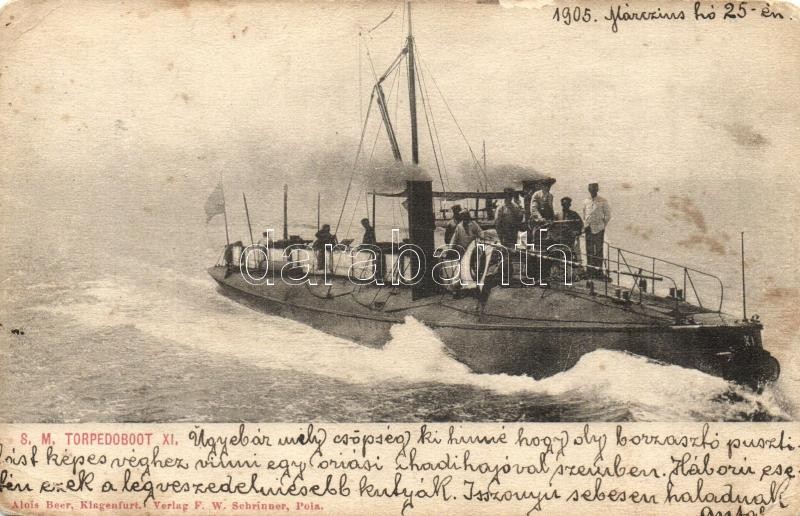 1905. Márczius hó 25-én.
darabanth
XI
S. M. TORPEDOBOOT XI.
Ugyebár mily csöpség ki hinné hogy oly borzasztó puszti-
tást képes véghez vinni egy óriási hadihajóval szemben. Háború ese-
tén ezek a legveszedelmesebb kutyák. Isszonyu sebesen haladnak
Alois Beer, Klagenfurt. Verlag F. W. Schrinner, Pola.